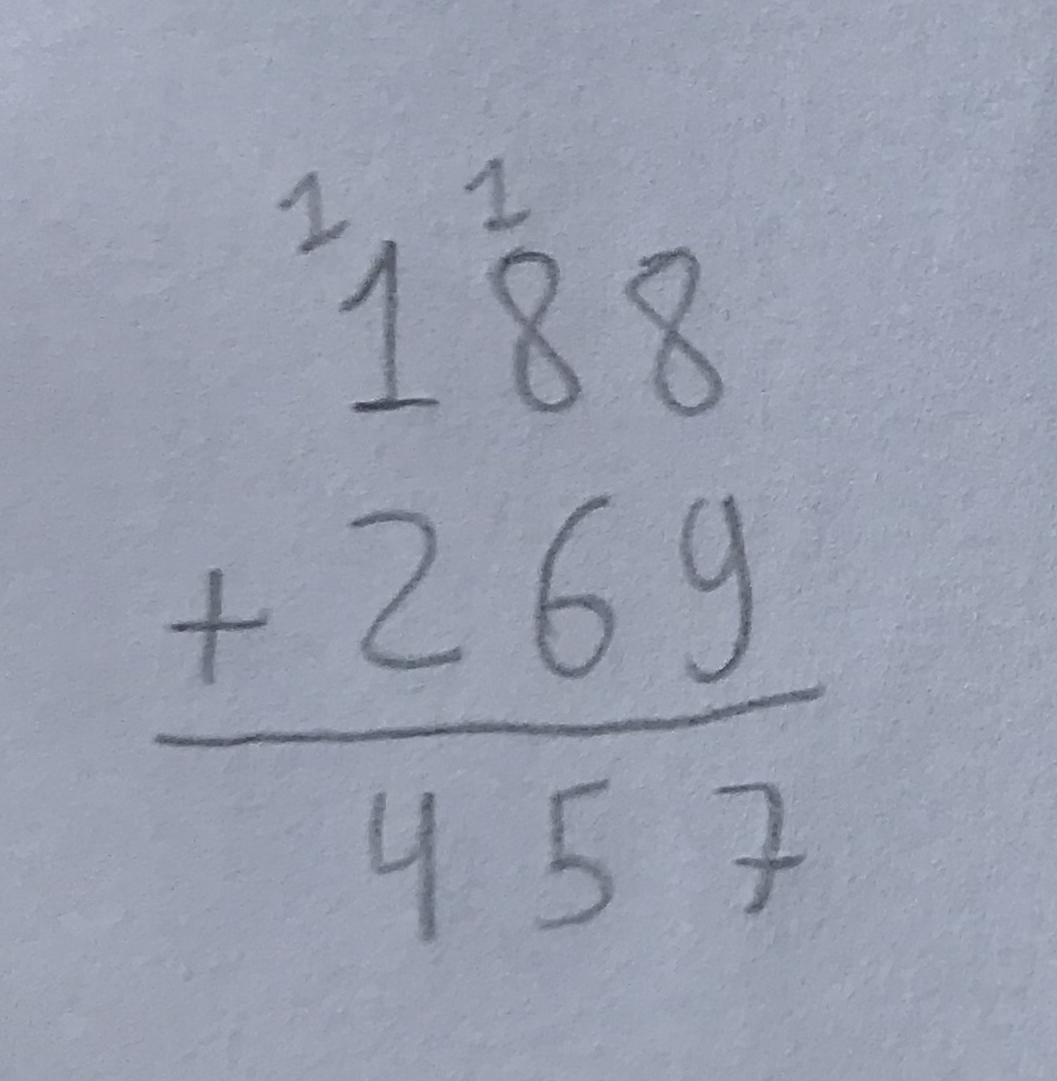 1 1
188
+ 269
457